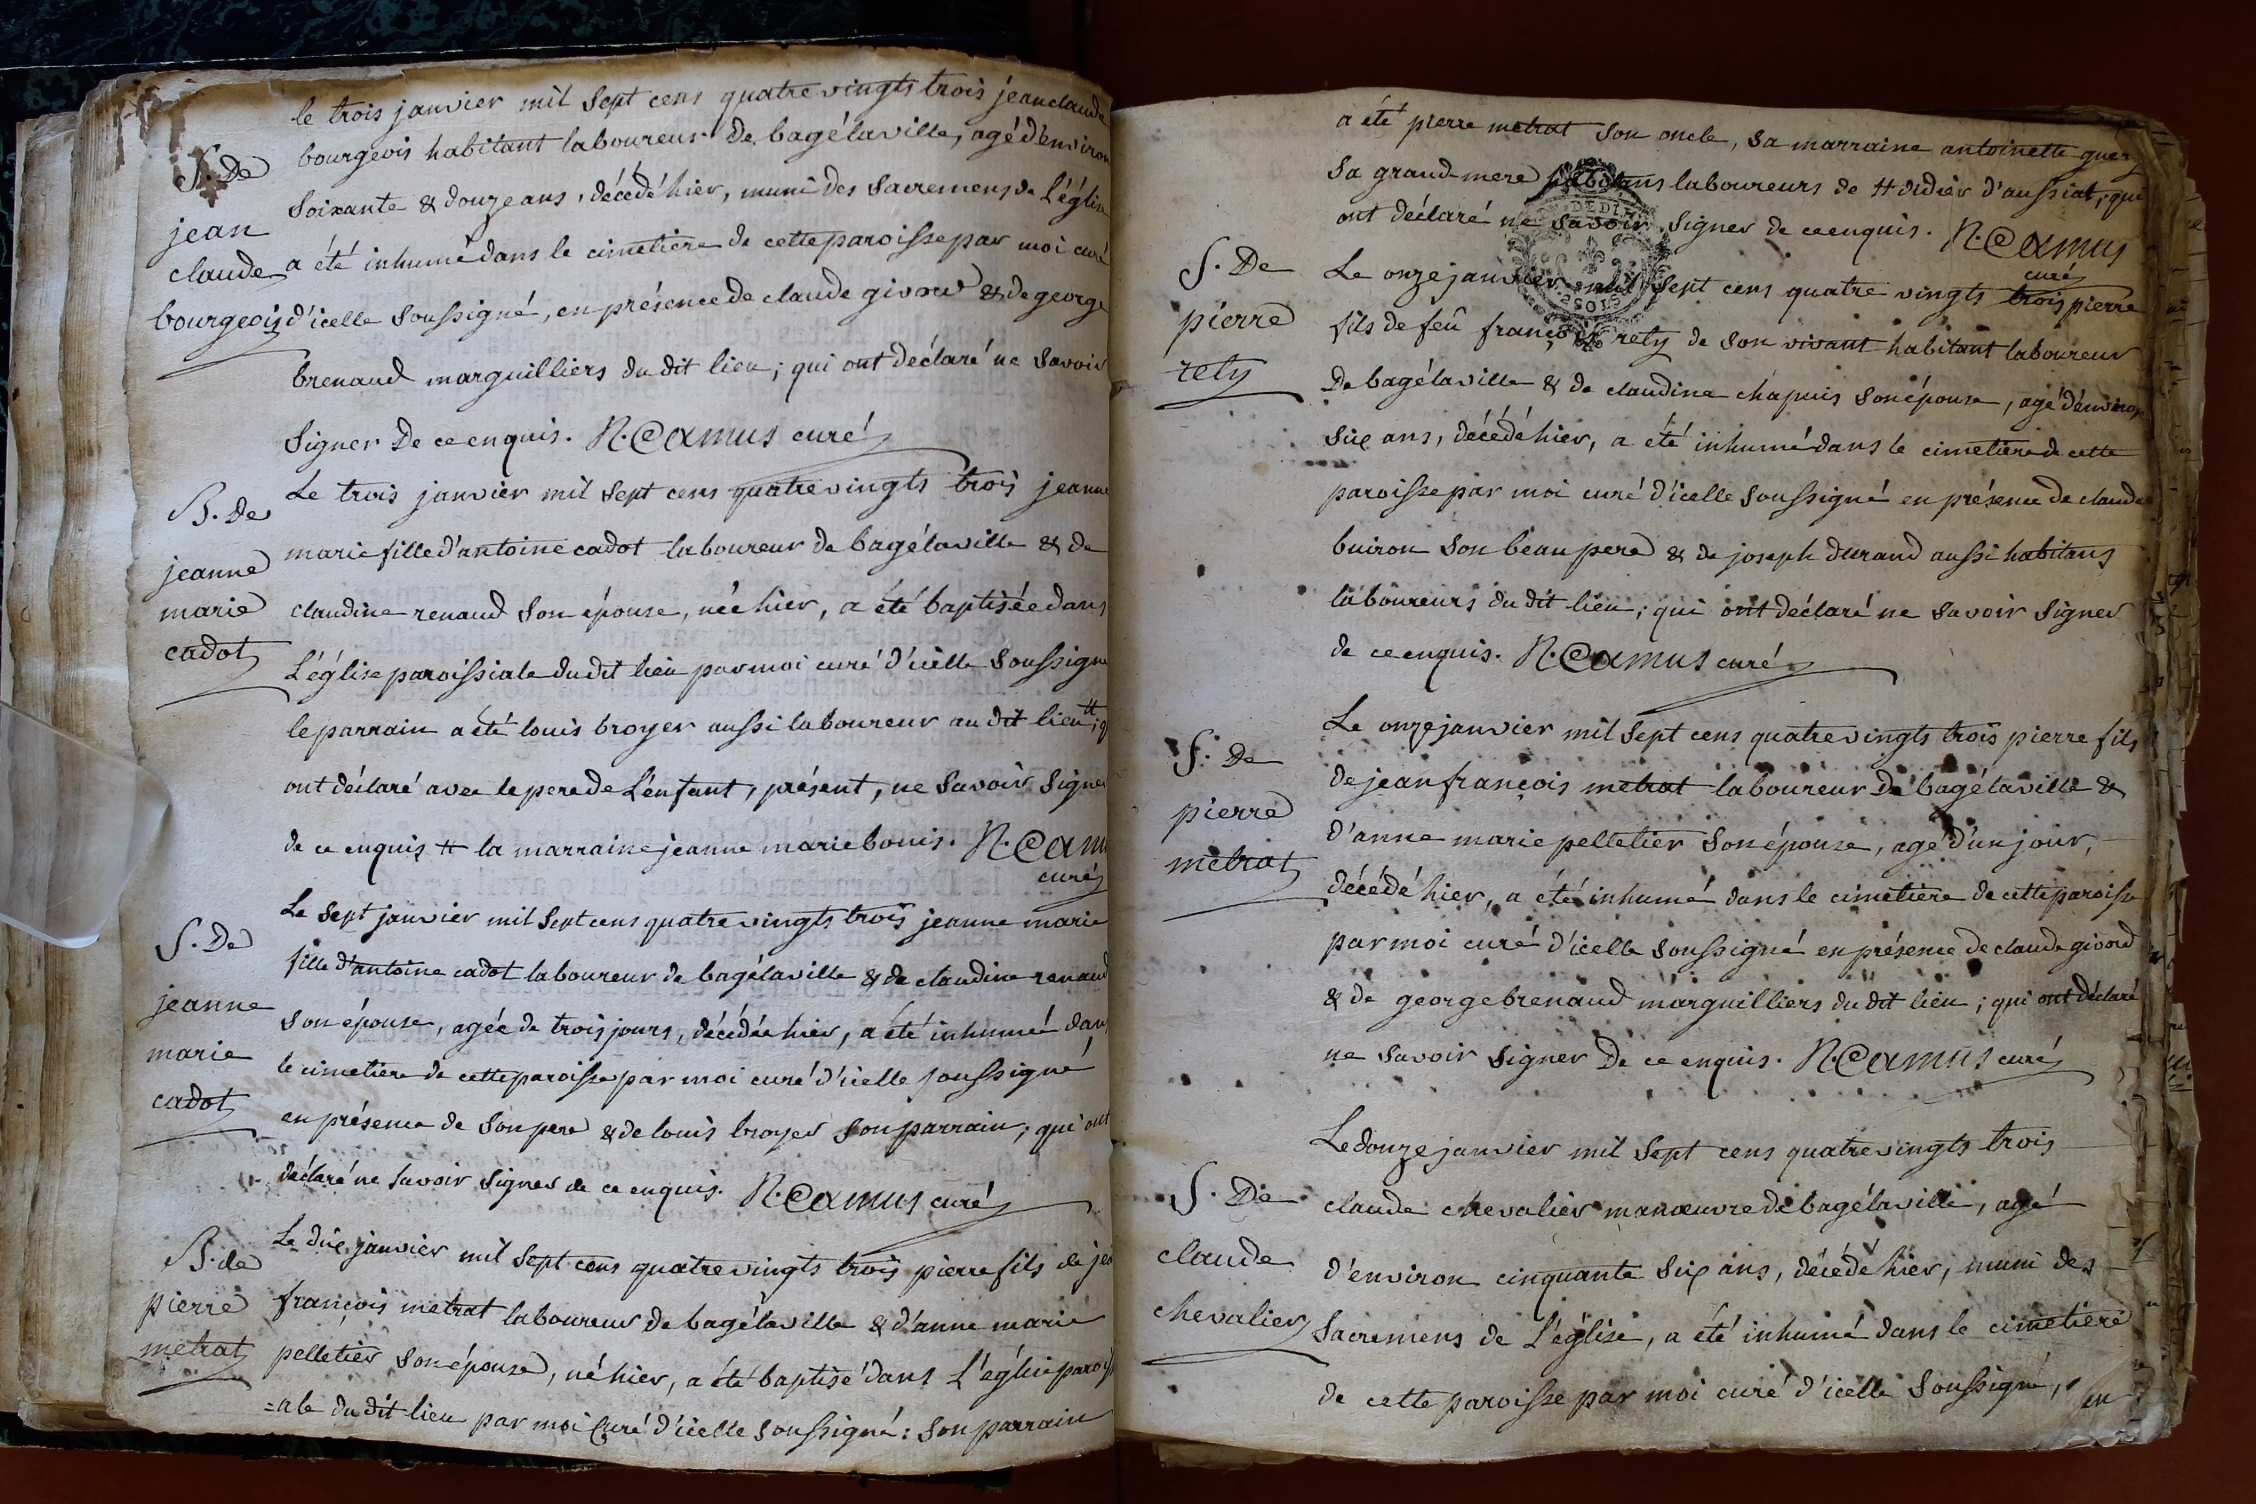 le trois janvier mil sept cens quatre vingts trois jean claude
S. De bourgeois habitant laboureur de bagélaville, agé d'environ
soixante & douze ans, décédé hier, muni des sacremens de L'églis
jean
claude a été inhumé dans le cimetiere de cette paroisse par moi curé
bourgeois d'icelle soussigné, en présence de claude givord & de george
brenaud marguilliers du dit lieu; qui ont déclaré ne savoir
signer De ce enquis. N. Camus curé
B. de Le trois janvier mil sept cens quatre vingts trois jeanne
jeanne marie fille d'antoine cadot laboureur de bagélaville & de
marie claudine renaud son épouse, née hier, a été baptisée dans
cadot L'église paroissiale du dit lieu par moi curé d'icelle soussigné
le parrain a été louis broyer aussi laboureur au dit lieu #; q
ont déclaré avec le pere de L'enfant, présent, ne savoir signer
de ce enquis # la marraine jeanne marie bouis. N. Camu
curé
Le sept janvier mil sept cens quatre vingts trois jeanne marie
S. De fille d'antoine cadot laboureur de bagélaville & de claudine renaud
jeanne son épouse, agée de trois jours, décédée hier, a été inhumée dans
marie le cimetiere de cette paroisse par moi curé d'icelle soussigné
cadot en présence de son pere & de louis broyer son parrain; qui ont
déclaré ne savoir signer de ce enquis. N. Camus curé
B. de Le dix janvier mil sept cens quatre vingts trois pierre fils de jea
pierre françois metrat laboureur de bagélaville & d'anne marie
metrat pelletier son épouse, né hier, a été baptisé dans L'église paroiss
=ale du dit lieu par moi Curé d'icelle soussigné: son parrain
a été pierre metrat son oncle, sa marraine antoinette guer
sa grand-mere habitans laboureurs de st didier d'aussiat, qui
ont déclaré ne savoir signer de ce enquis. N. Camus
curé
S. De Le onze janvier mil sept cens quatre vingts trois pierre
pierre fils de feû françois rety de son vivant habitant laboureur
rety De bagélaville & de claudine chapuis son épouse, agé d'environ
six ans, décédé hier, a été inhumé dans le cimetiere de cette
paroisse par moi curé d'icelle soussigné en présence de claude
buiron son beau pere & de joseph durand aussi habitans
laboureurs du dit lieu; qui ont déclaré ne savoir signer
de ce enquis. N. Camus curé
Le onze janvier mil sept cens quatre vingts trois pierre fils
S. De de jean françois metrat laboureur De bagélaville &
pierre d'anne marie pelletier son épouse, agé d'un jour,
metrat décédé hier, a été inhumé dans le cimetiere de cette paroisse
par moi curé d'icelle soussigné en présence de claude givord
& de george brenaud marguilliers du dit lieu; qui ont déclaré
ne savoir signer De ce enquis. N. Camus curé
Le douze janvier mil sept cens quatre vingts trois
S. De claude chevalier manœuvre de bagélaville, agé
claude d'environ cinquante six ans, décédé hier, muni des
chevalier sacremens de L'église, a été inhumé dans le cimetiere
de cette paroisse par moi curé d'icelle soussigné, en